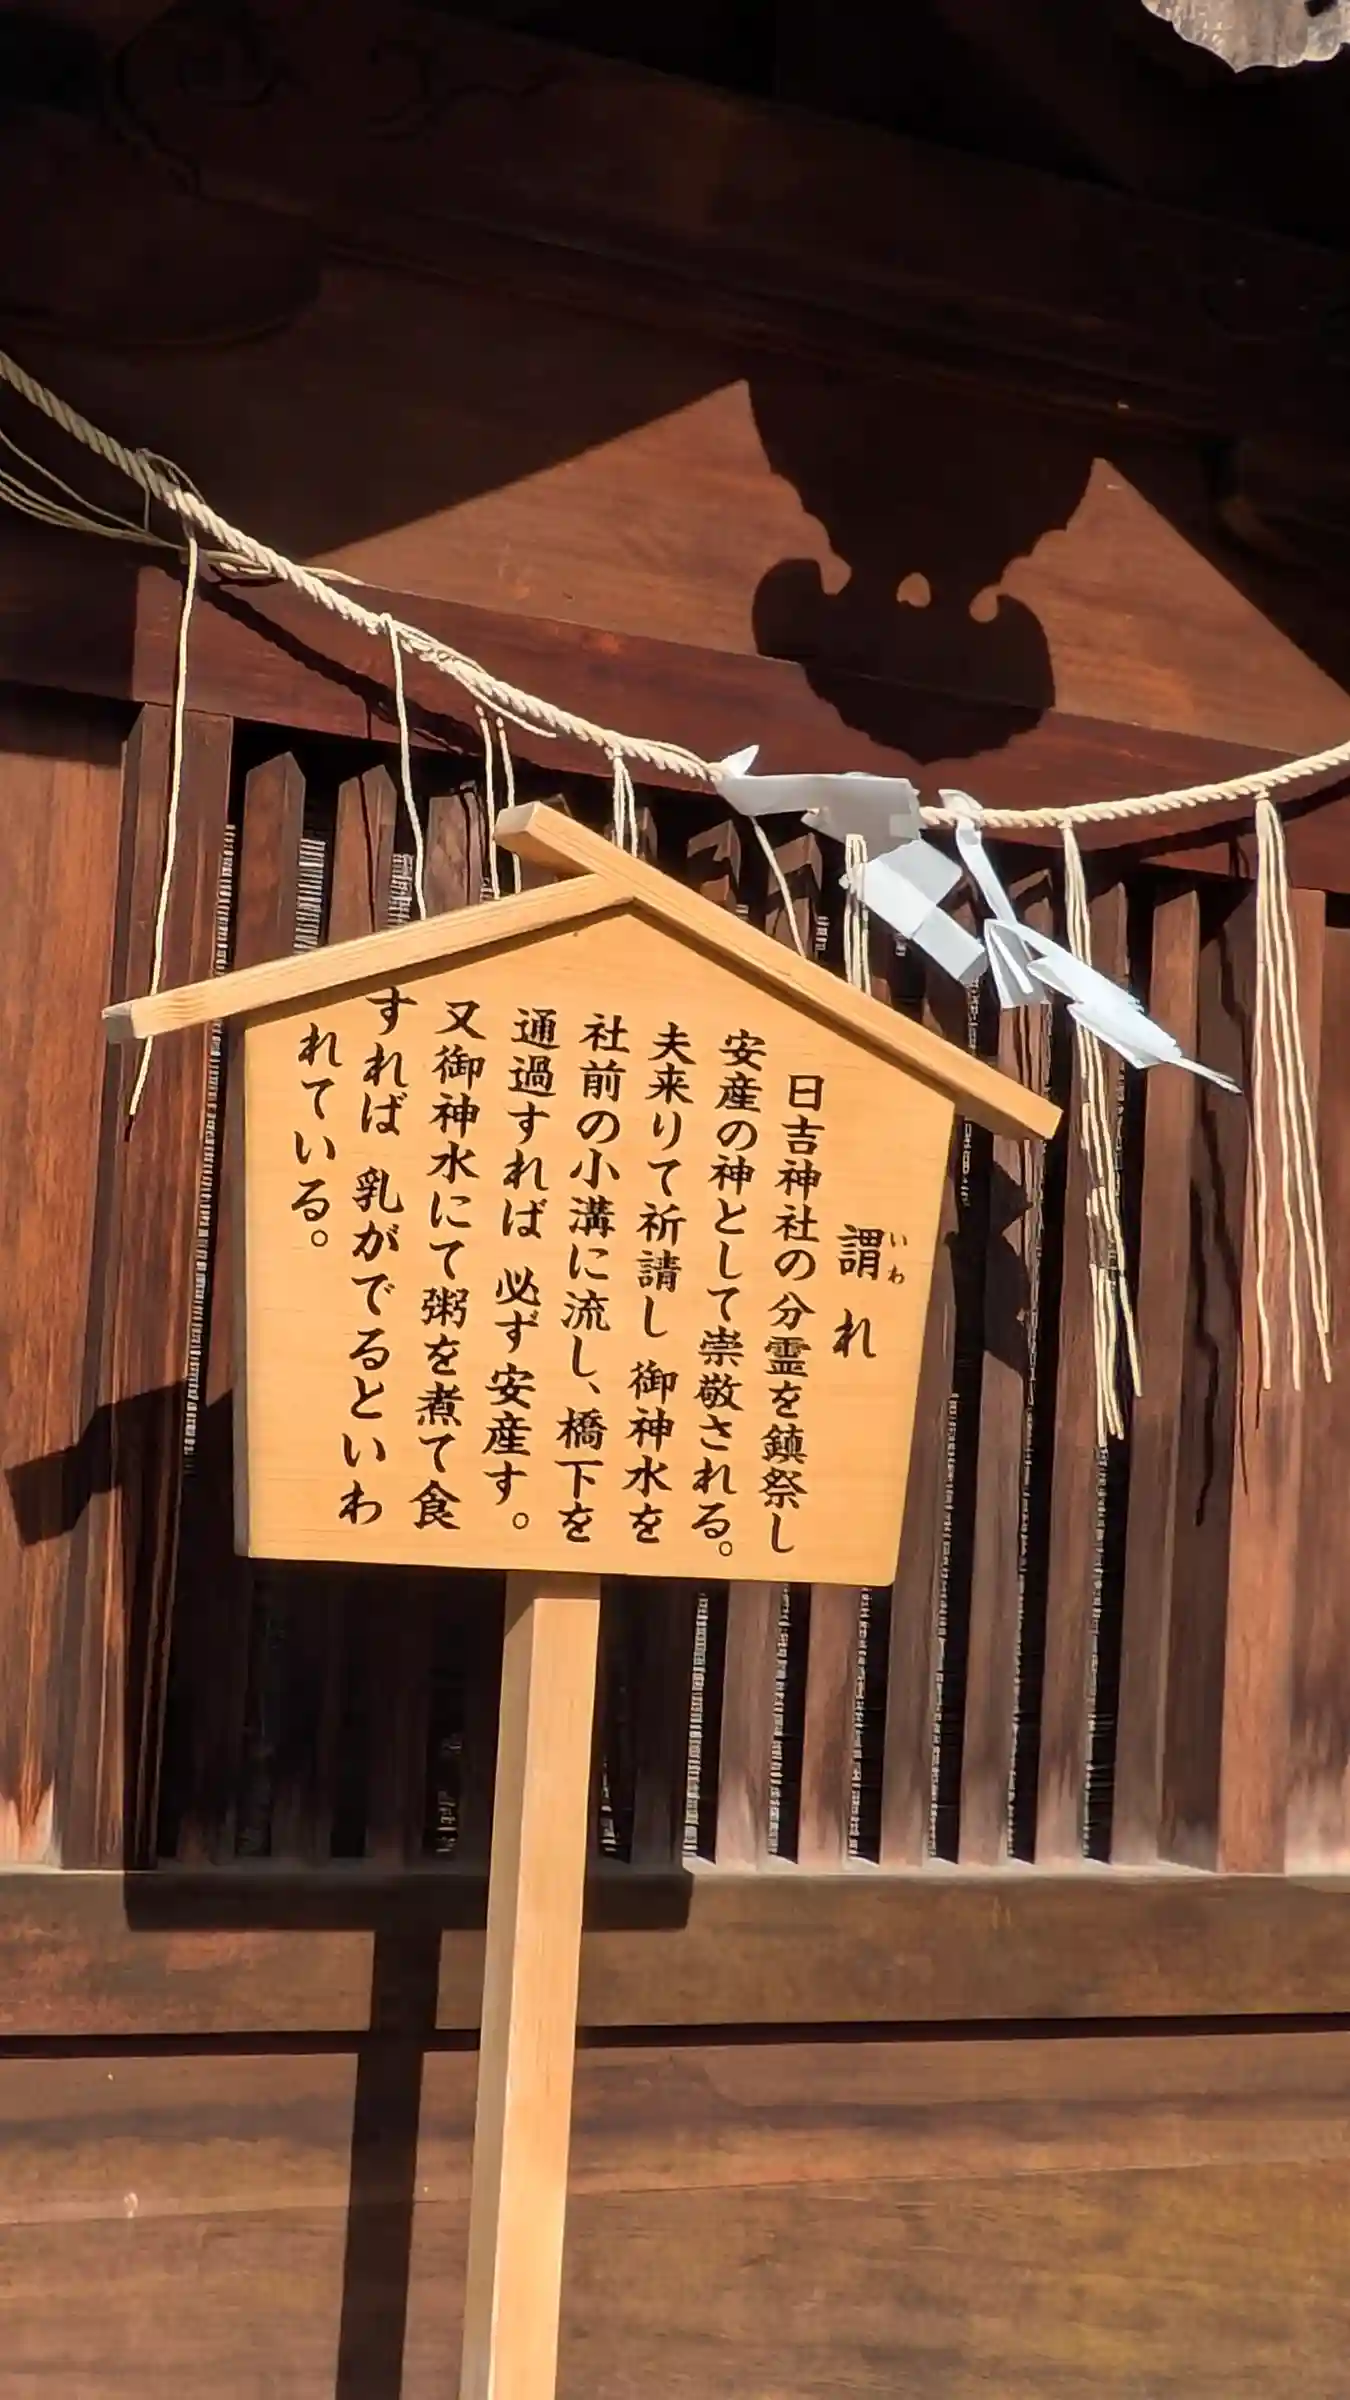 謂れ
いわ
日吉神社の分霊を鎮祭し
安産の神として崇敬される。
夫来りて祈請し 御神水を
社前の小溝に流し、橋下を
通過すれば 必ず安産す。
又御神水にて粥を煮て食
すれば 乳がでるといわ
れている。